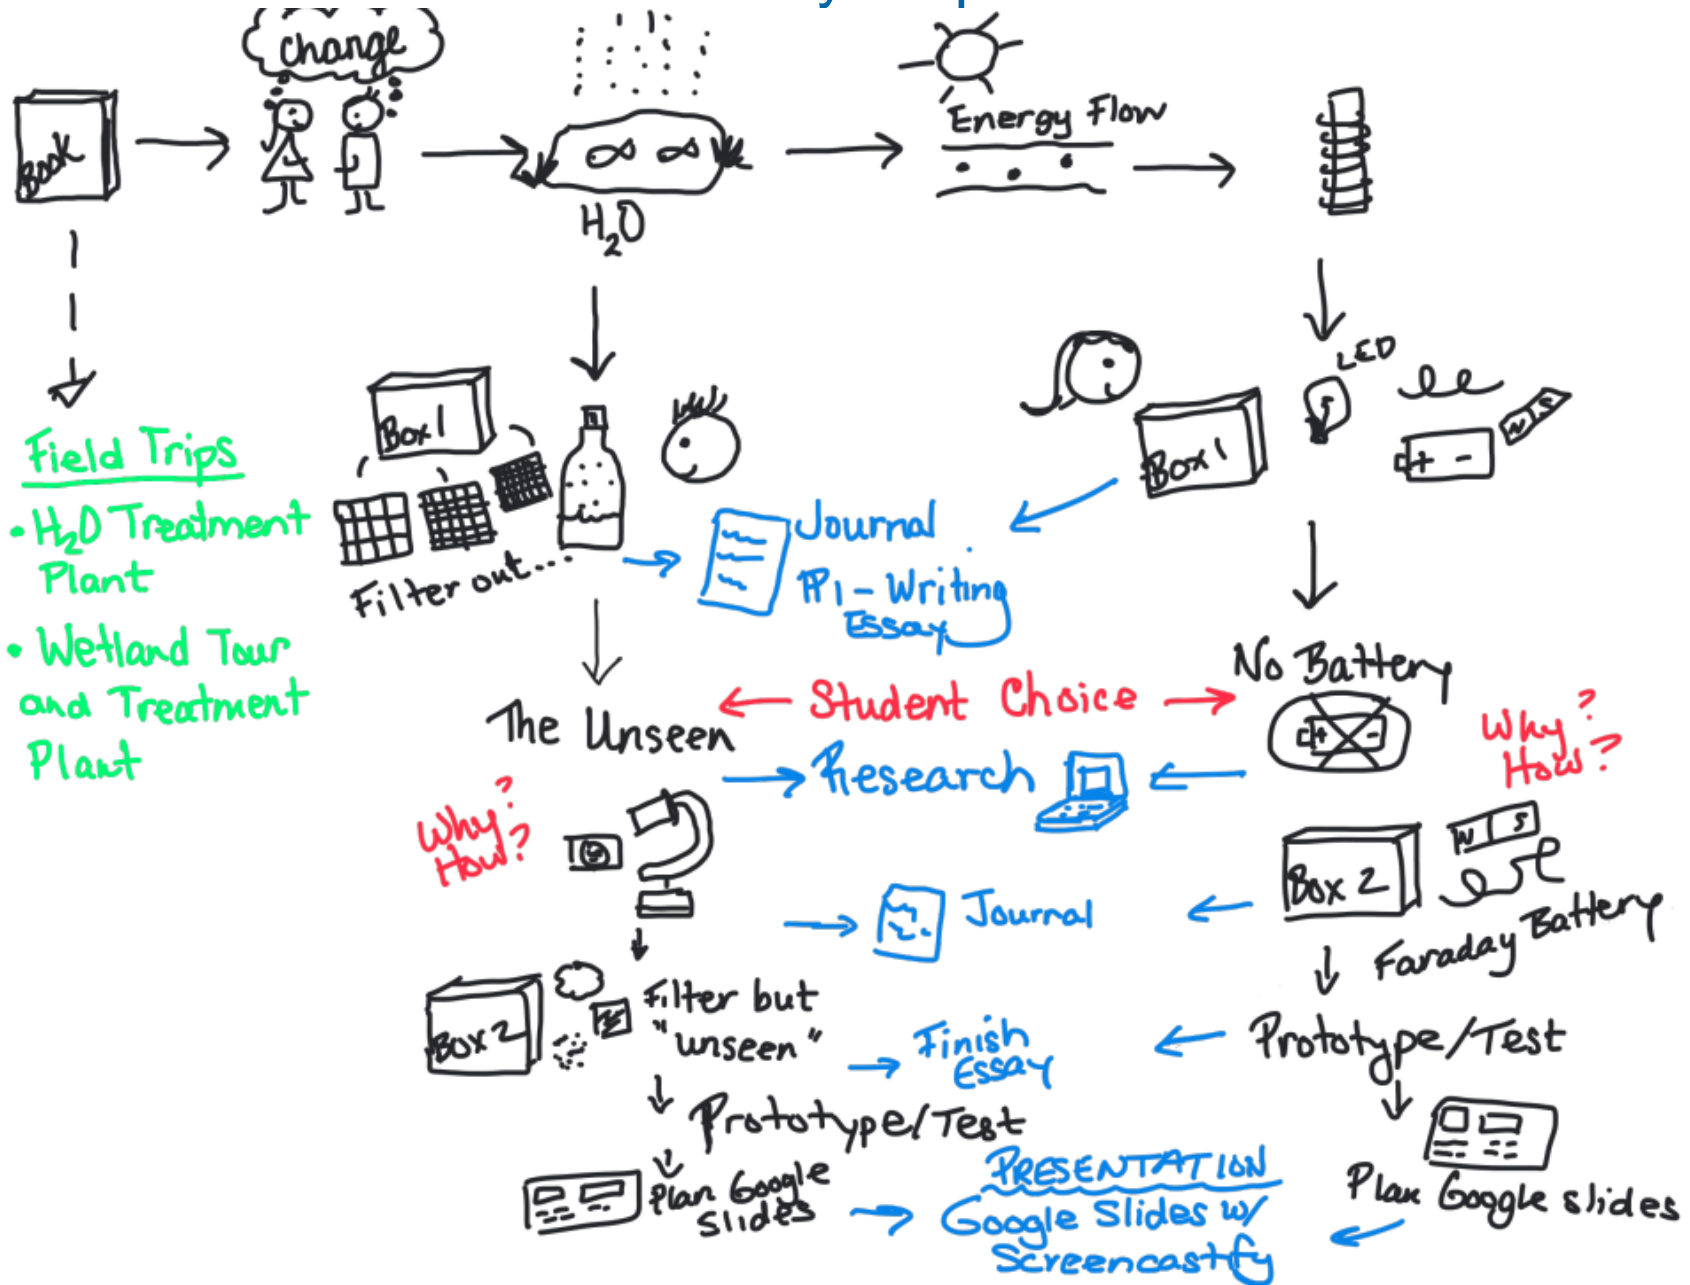 change
Book
H₂O
Energy Flow
Field Trips
• H₂O Treatment
Plant
• Wetland Tour
and Treatment
Plant
Box 1
Filter out...
LED
Box 1
N S
+ -
Journal
PP1 - Writing
Essay
The Unseen
Student Choice
No Battery
+ -
Why?
How?
Research
Why?
How?
N S
Box 2
Faraday Battery
Journal
Box 2
Filter but
"unseen"
Finish
Essay
Prototype/Test
Prototype/Test
Plan Google
Slides
PRESENTATION
Google Slides w/
Screencastify
Plan Goggle slides